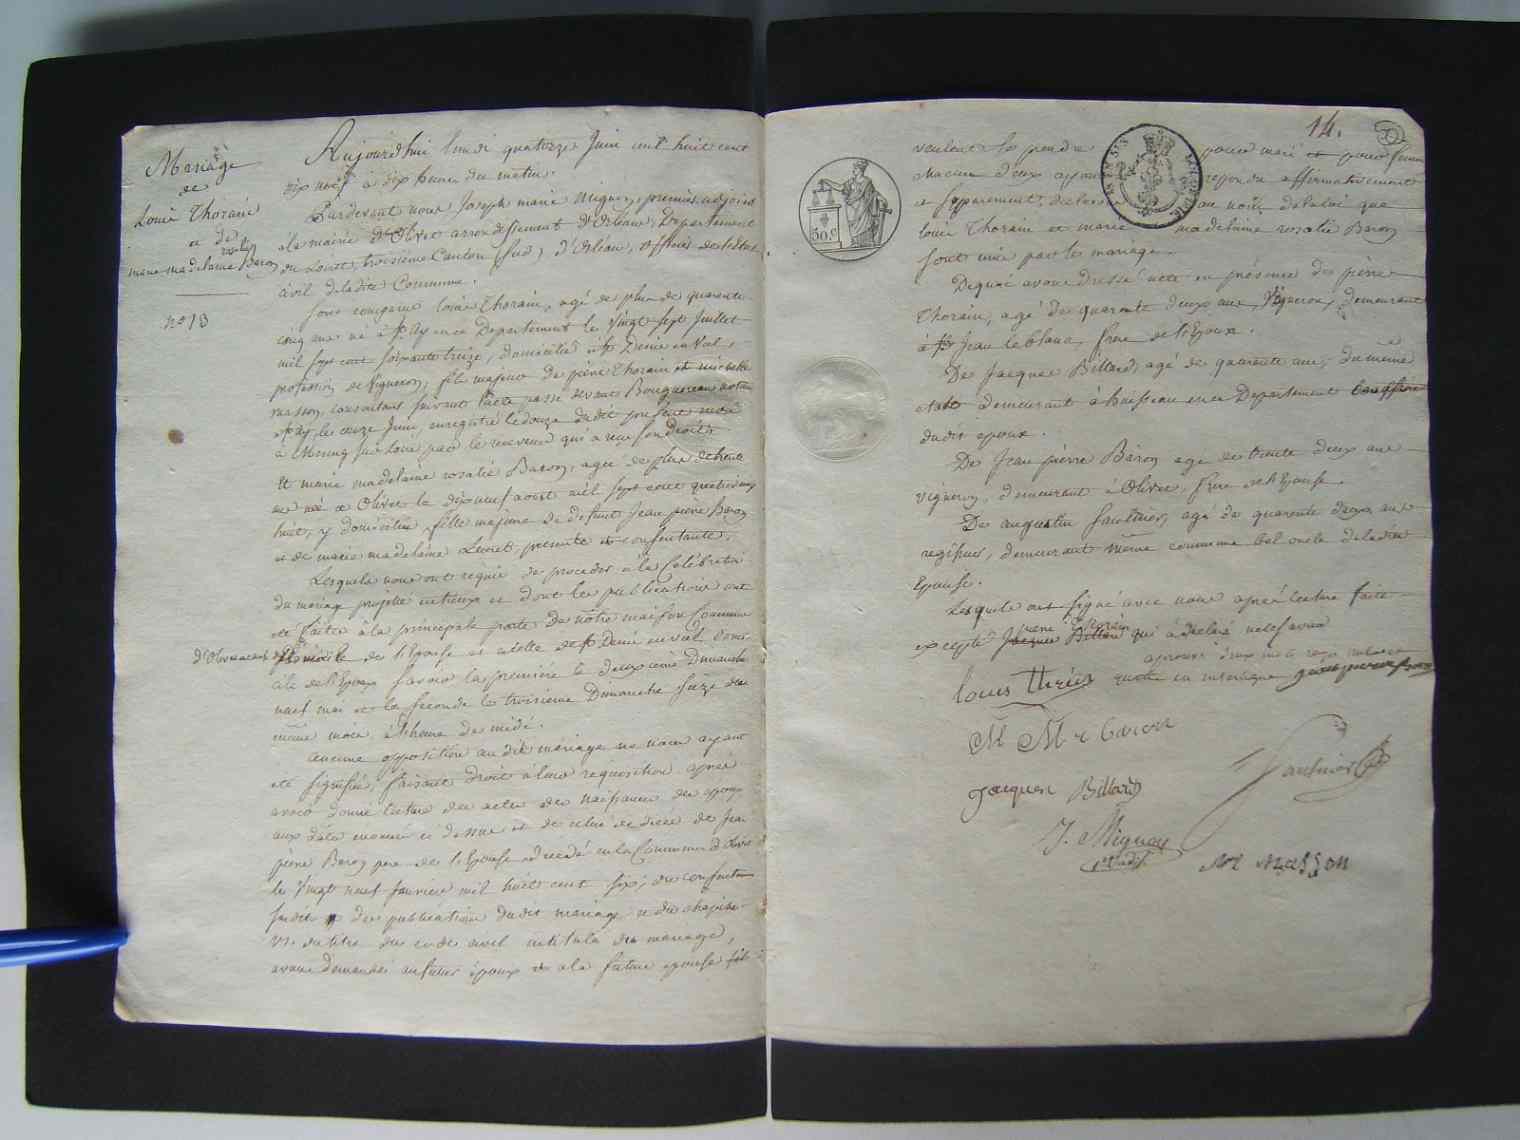 Mariage
de
Louis Thorain
et de
rosalie
marie madelaine Baron
no 13
Aujourdhui lundi quatorze Juin mil huit cent
dix neuf à dix heures du matin.
Pardevant nous Joseph marie Mignon, premier adjoint
à la mairie d'Olivet arrondissement d'Orléans, Departement
du Loiret, troisieme Canton (sud) d'Orléans, officier de l'état
civil de ladite Commune.
sont comparus louis Thorain, agé de plus de quarante
cinq ans né à St. Ay en ce Departement le Vingt sept Juillet
mil sept cent soixante treize, domicilié à St Denis en Val,
profession de Vigneron, fils majeur de pierre Thorain et michelle
masson, consentans suivant l'acte passé devant Bougereau notaire
à St ay, le onze Juin, enregistré le douze dudit présent mois
à Meung sur Loire par le receveur qui a reçu son droit
Et marie madelaine rosalie Baron, agée de plus de trente
ans née à Olivet le dix neuf aoust mil sept cent quatre vingt
huit, y domiciliée, fille majeure de defunt Jean pierre Baron
et de marie madelaine Leuret, presente et consentante.
Lesquels nous ont requis de proceder à la Célébration
du mariage projetté entreux et dont les publications ont
été faites à la principale porte de notre maison Commune
d'Olivet de l'Epouse et celle de St Denis en val domi
cile de l'Epoux savoir la premiére le deuxieme Dimanche
neuf mai et la seconde le troisieme Dimanche seize du
même mois à l'heure de midi.
aucune opposition au dit mariage ne nous ayant
été signifiée, faisant droit à leur requisition, après
avoir donné lecture des actes de naissance des epoux
aux dates énoncées ci dessus et de celui de décès de Jean
pierre Baron père de l'Epouse décédé en la Commune d'Olivet
le Vingt neuf Janvier mil huit cent six, du consentement
susdit des publications dudit mariage et du chapitre
VI. du titre du code civil intitulé du mariage,
avons demandé au futur époux et a la future epouse s'ils
14.
50 c
veulent se prendre pour mari et pour femme
chacun d'eux ayant repondu affirmativement
et séparement, declarons au nom de la loi que
louis Thorain et marie madelaine rosalie Baron
sont unis par le mariage.
De quoi avons dressé acte en présence de pierre
Thorain, agé de quarante deux ans, Vigneron, demeurant
à St Jean le blanc, frere de l'Epoux.
De Jacques Billard, agé de quarante ans, du même
etat demeurant à huisseau en ce Departement
dudit epoux.
De Jean pierre Baron agé de trente deux ans
vigneron, demeurant à Olivet, frere de l'Epouse.
De augustin Saulnier, agé de quarante deux ans
demeurant même commune bel oncle de ladite
Epouse.
Lesquels ont signé avec nous après lecture faite
pierre Thorain
excepté Jacques Billard qui a déclaré ne le savoir
approuvé deux mots rayés
louis thorain
M M r baron
Jacques Billard
Saulnier
J. Mignon
1er adjt
Me masson